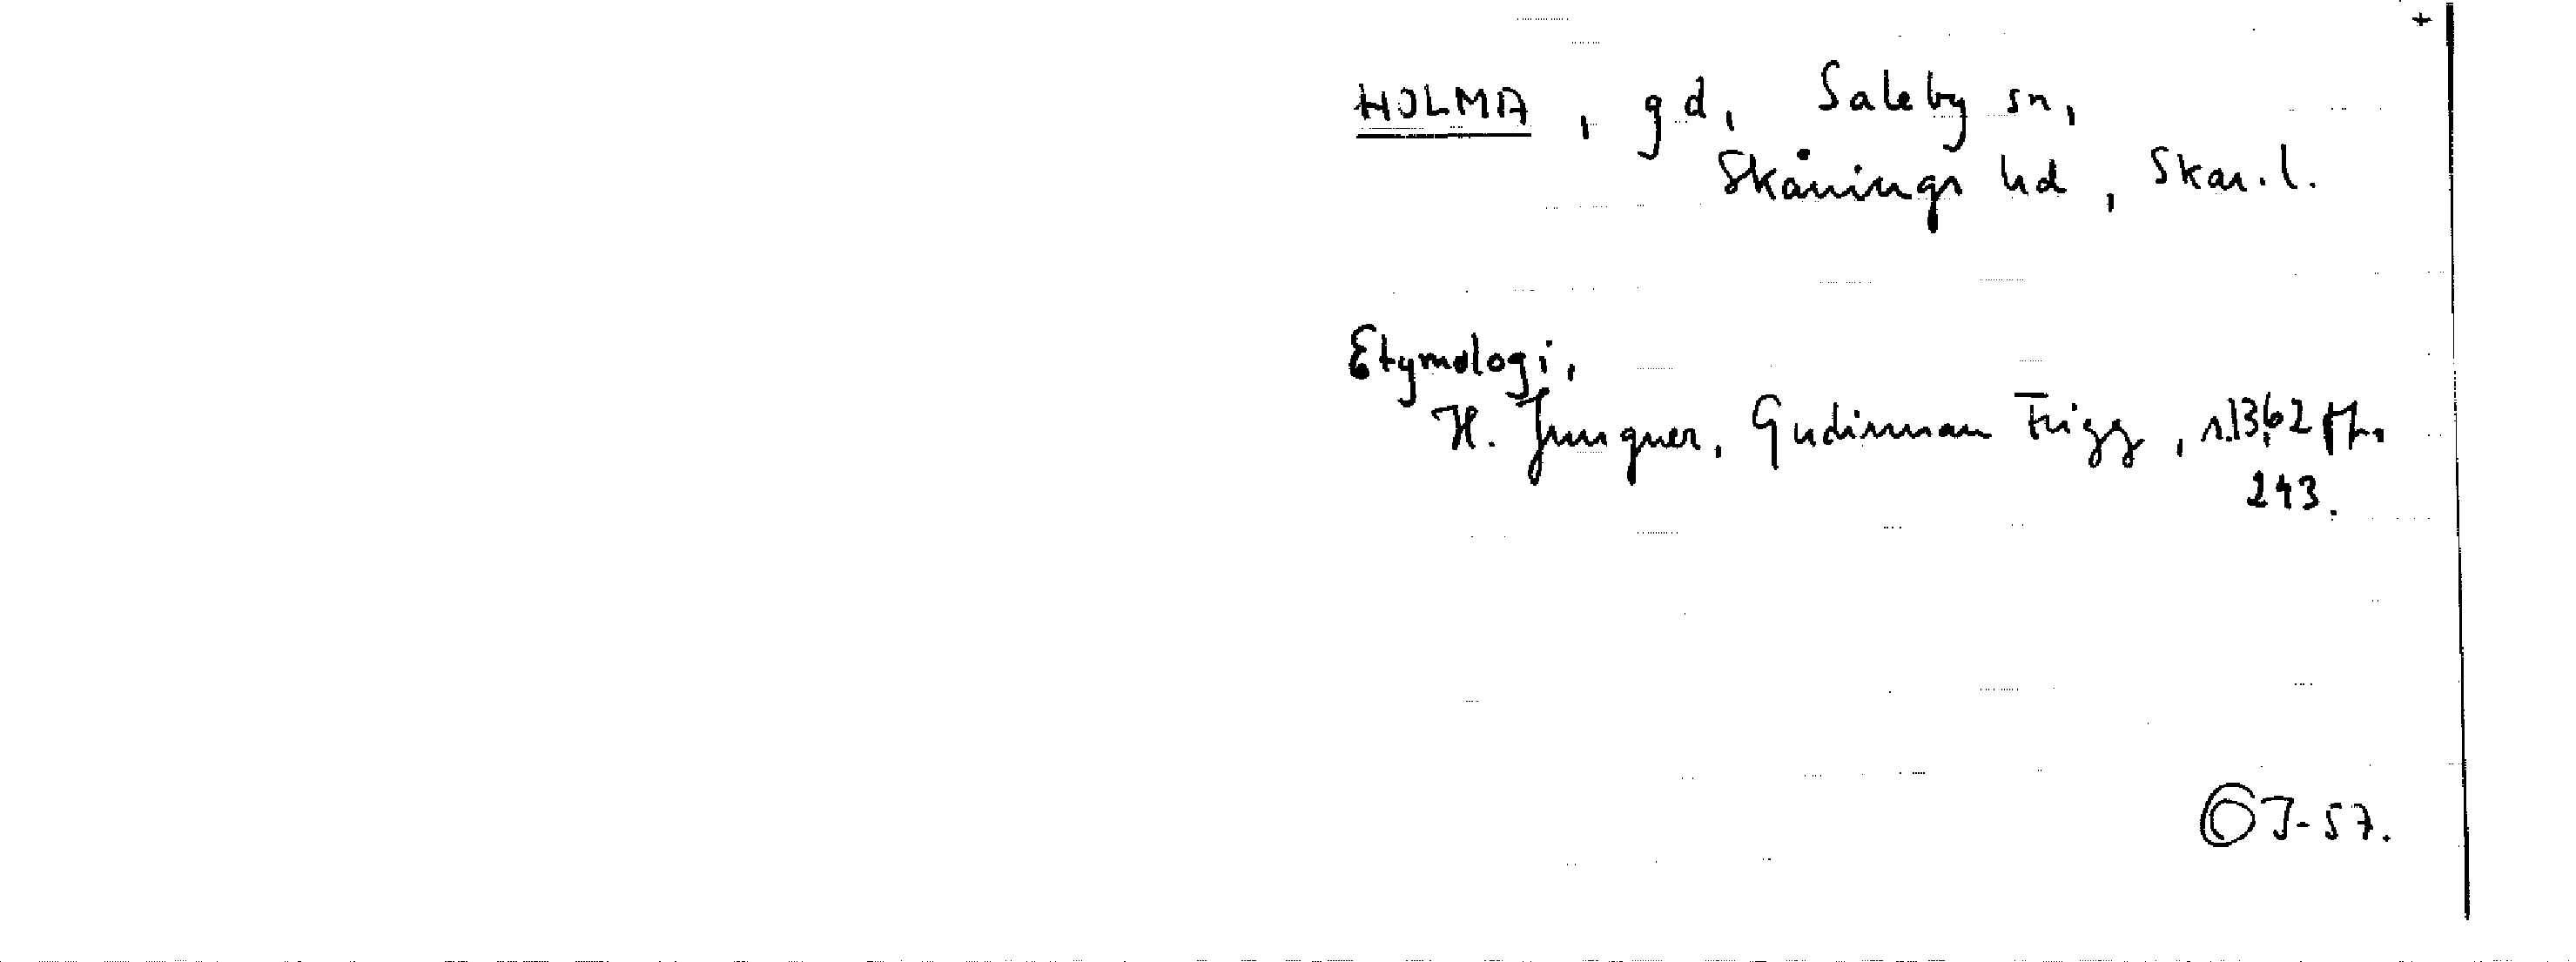 HOLMA, gd, Saleby sn,
Skånings hd, Skar.l.
Etymologi,
H. Jungner, Gudinnan Frigg, s.136,2 ff.
243.
J-57.